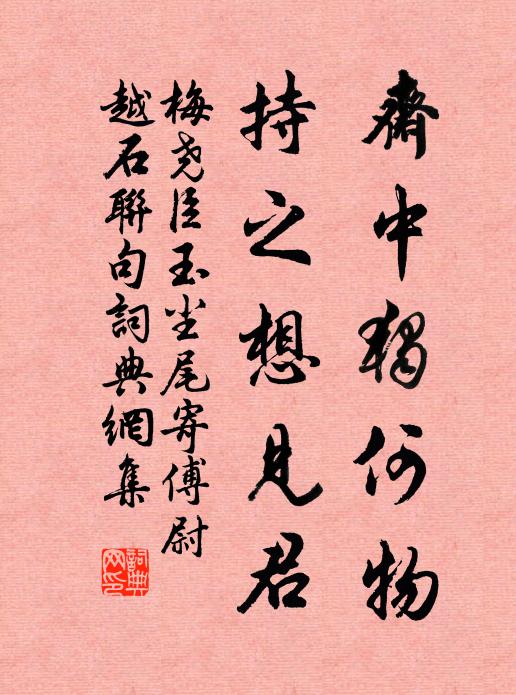 齋中獨何物
持之想見君
梅堯臣玉坐尾寄傅尉
越石聯句詞典網集
詞典網印